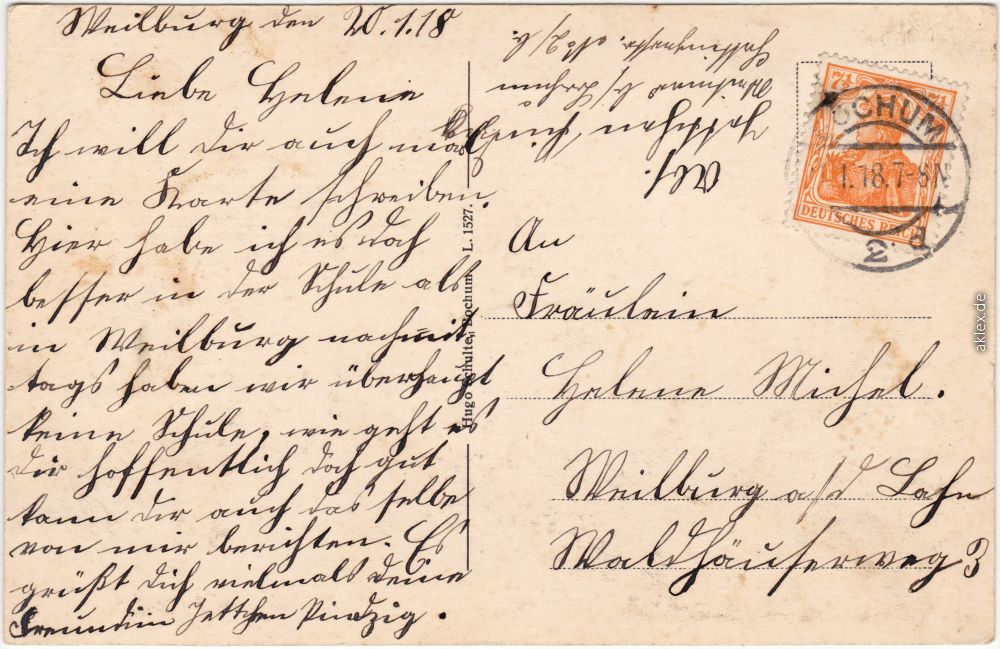 Weilburg den 20.1.18
Liebe Helene
Ich will dir auch mal
eine Karte schreiben.
Hier habe ich es doch
besser in der Schule als
in Weilburg nachmit
tags haben wir überhaupt
keine Schule, wie geht es
dir hoffentlich doch gut
kann dir auch das selbe
von mir berichten. Es
grüßt dich vielmals deine
Freundin Jettchen
Hugo Schulte, Bochum L. 1527.
Abs!
Jettchen
Bochum
An
Fräulein
Helene Michel.
Weilburg a/d Lahn
Waldhäuserweg 3
BOCHUM
1.18.7-8N
2.
DEUTSCHES REICH
7½ 7½
aklex.de